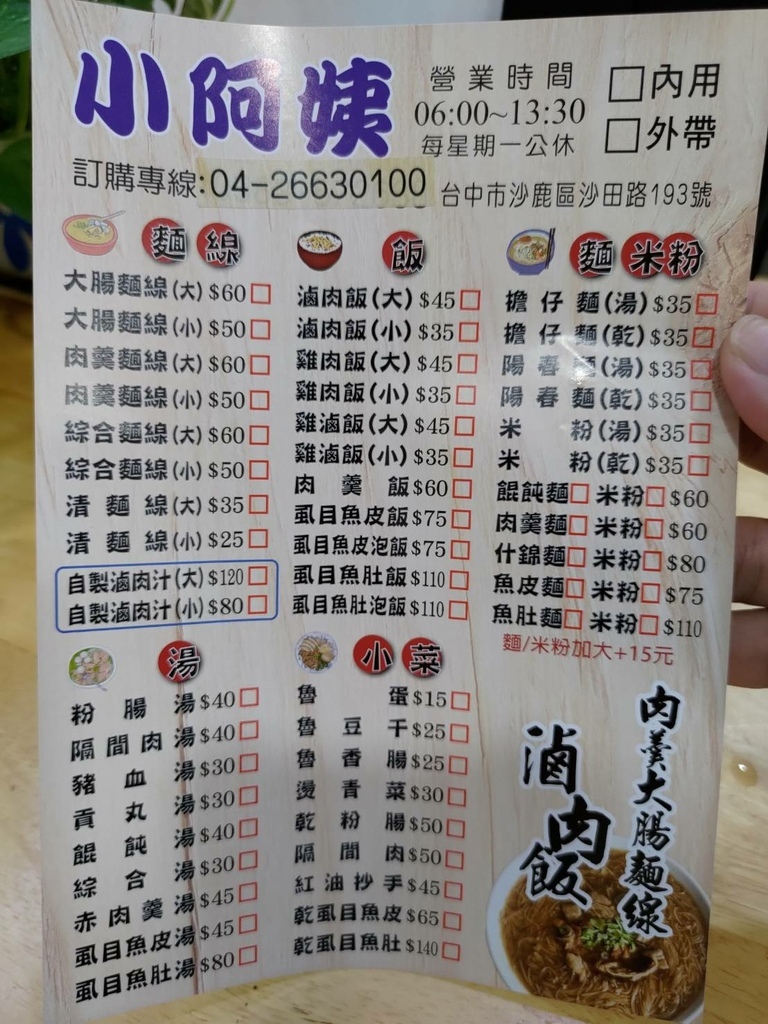 小阿姨
營業時間
06:00~13:30
每星期一公休
□內用
□外帶
訂購專線:04-26630100
台中市沙鹿區沙田路193號
麵線
大腸麵線(大) $60□
大腸麵線(小) $50□
肉羹麵線(大) $60□
肉羹麵線(小) $50□
綜合麵線(大) $60□
綜合麵線(小) $50□
清麵線(大) $35□
清麵線(小) $25□
自製滷肉汁(大) $120□
自製滷肉汁(小) $80□
飯
滷肉飯(大) $45□
滷肉飯(小) $35□
雞肉飯(大) $45□
雞肉飯(小) $35□
雞滷飯(大) $45□
雞滷飯(小) $35□
肉羹飯 $60□
虱目魚皮飯 $75□
虱目魚皮泡飯 $75□
虱目魚肚飯 $110□
虱目魚肚泡飯 $110□
麵 米粉
擔仔麵(湯) $35□
擔仔麵(乾) $35□
陽春麵(湯) $35□
陽春麵(乾) $35□
米粉(湯) $35□
米粉(乾) $35□
餛飩麵□ 米粉□ $60
肉羹麵□ 米粉□ $60
什錦麵□ 米粉□ $80
魚皮麵□ 米粉□ $75
魚肚麵□ 米粉□ $110
麵/米粉加大+15元
湯
粉腸湯 $40□
隔間肉湯 $40□
豬血湯 $30□
貢丸湯 $30□
餛飩湯 $40□
綜合湯 $30□
赤肉羹湯 $45□
虱目魚皮湯 $45□
虱目魚肚湯 $80□
小菜
魯蛋 $15□
魯豆干 $25□
魯香腸 $25□
燙青菜 $30□
乾粉腸 $50□
隔間肉 $50□
紅油抄手 $45□
乾虱目魚皮 $65□
乾虱目魚肚 $140□
肉羹大腸麵線
滷肉飯